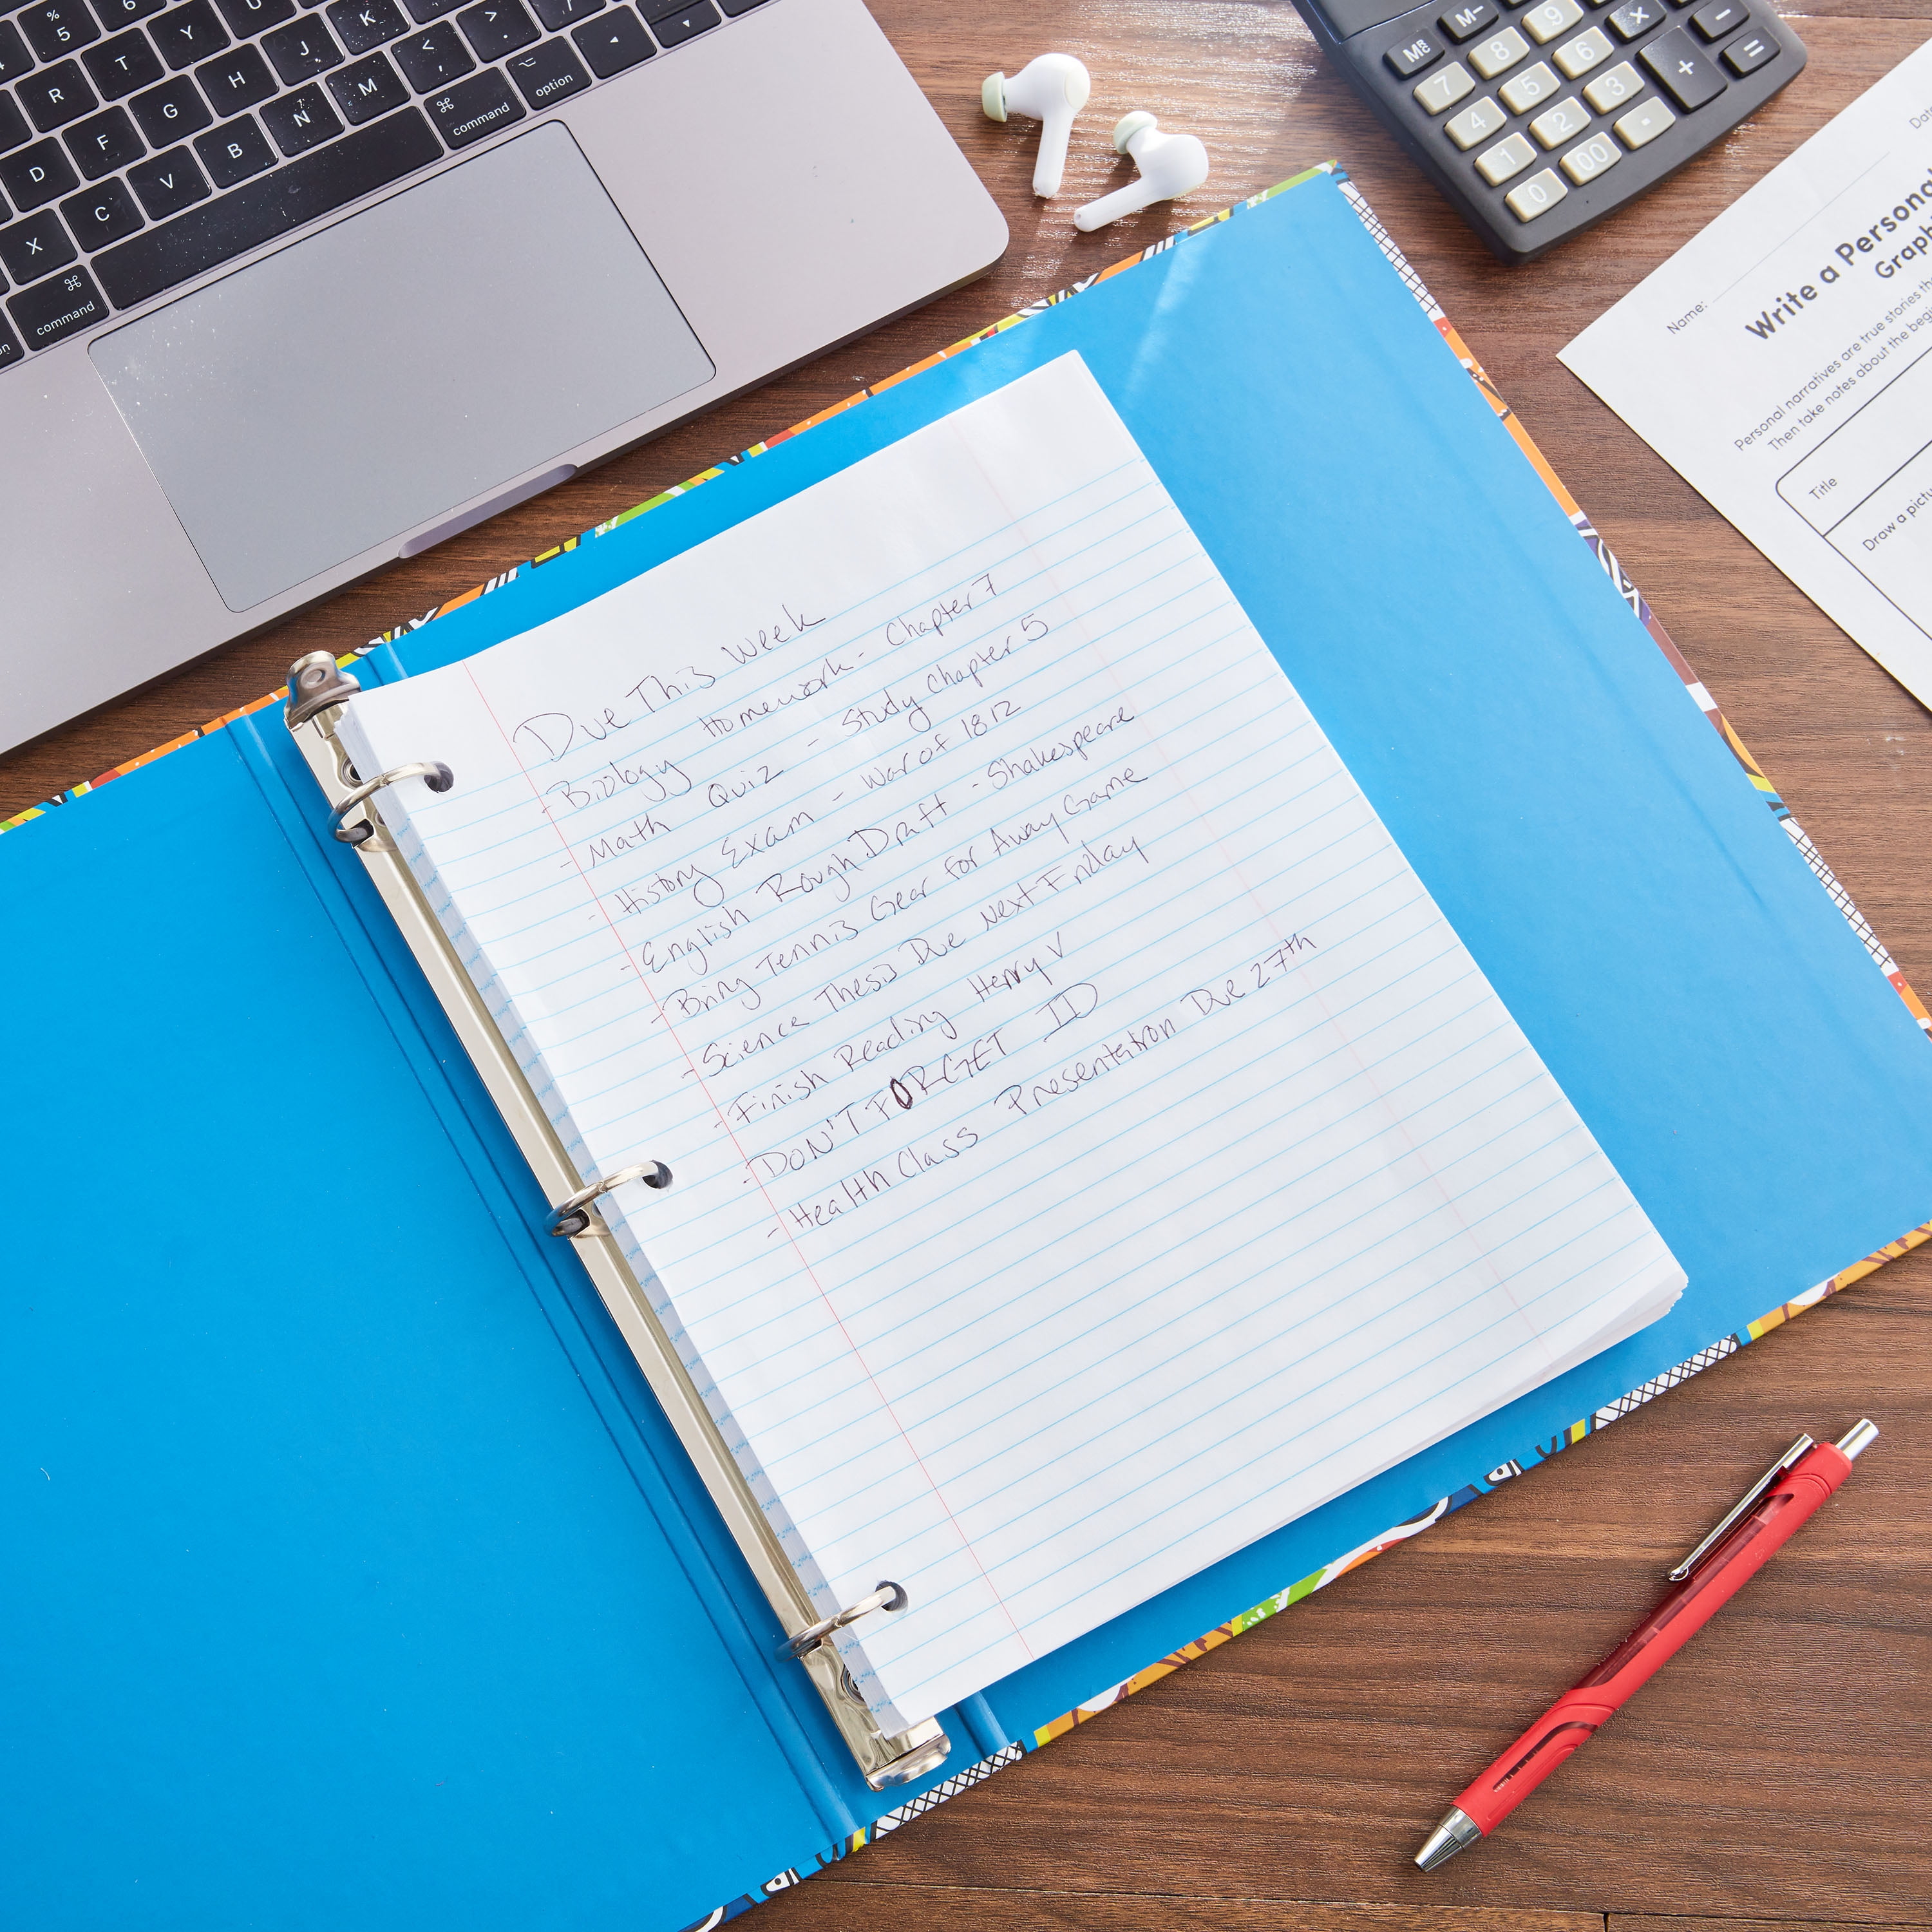 % 5 6
R T Y U J K < , > . ? /
D F G H N M ⌘ command ⌥ option
X C V B
⌘ command
M- 9 × -
MRC 8 6 + =
7 5 3
4 2 .
1 00
0
Name:
Write a Personal
Graph
Personal narratives are true stories
Then take notes about the
Title
Draw a
Due This Week
- Biology Homework - Chapter 7
- Math Quiz - Study Chapter 5
- History Exam - War of 1812
- English Rough Draft - Shakespeare
- Bring Tennis Gear for Away Game
- Science Thesis Due Next Friday
- Finish Reading Henry V
- DON'T FORGET ID
- Health Class Presentation Due 27th